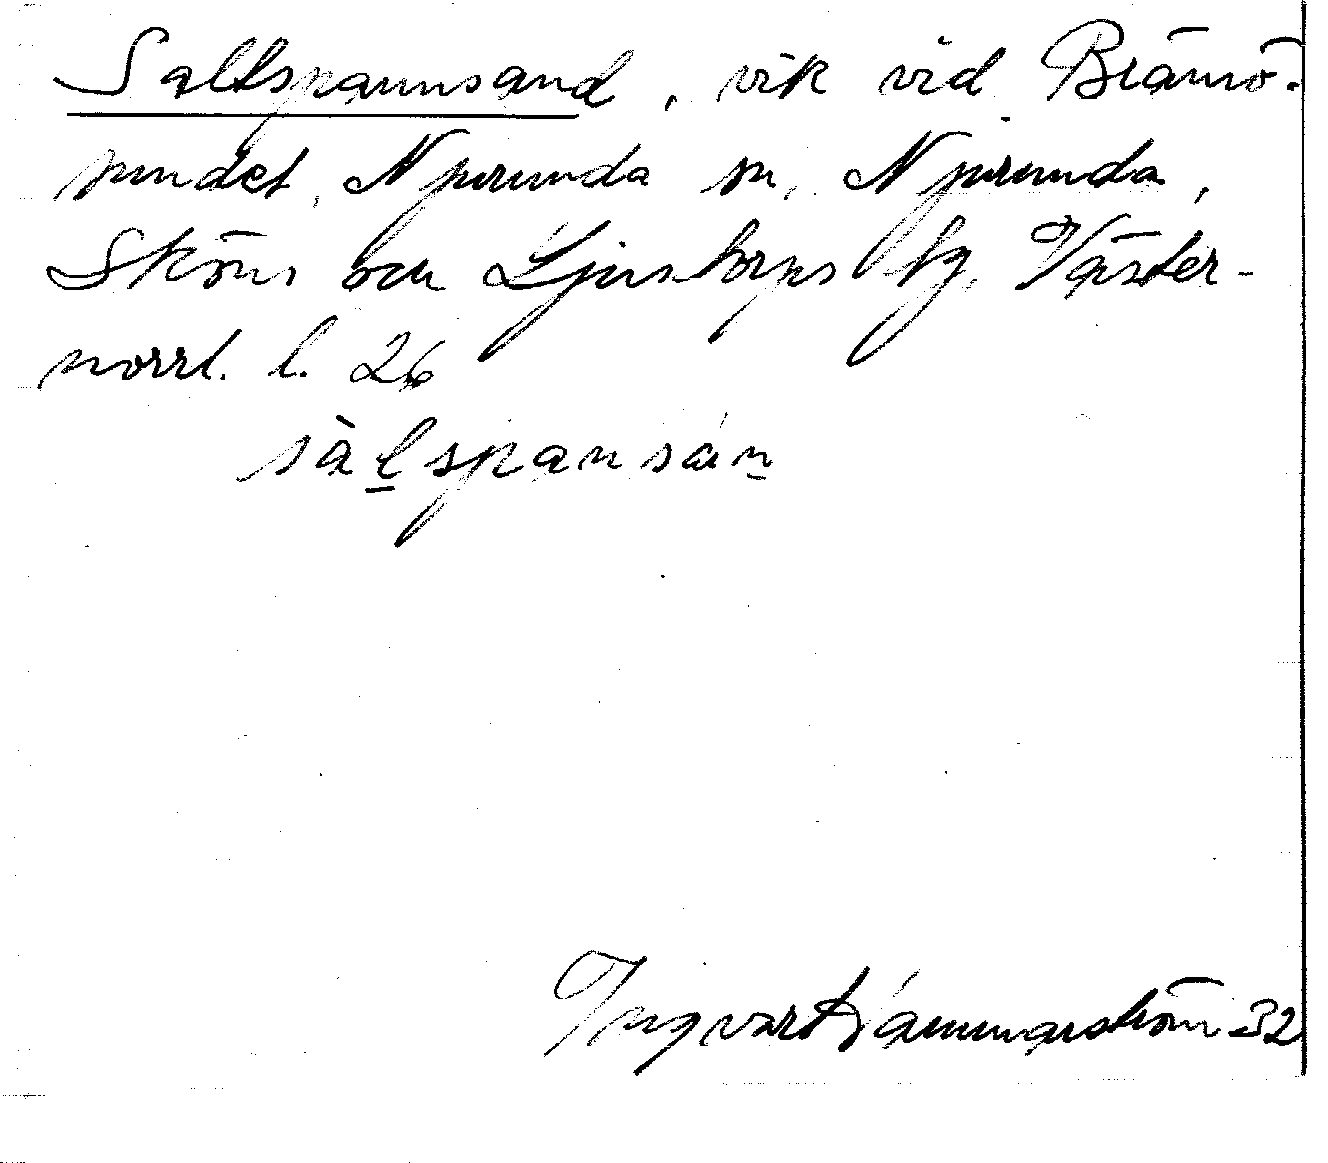 Saltspannsand, vik vid Brämö-
sundet, Njurunda sn, Njurunda,
Sköns och Ljustorps tg, Väster-
norrl. l. 26
sàl̲spansán̲
Ingvar Hammarström 32